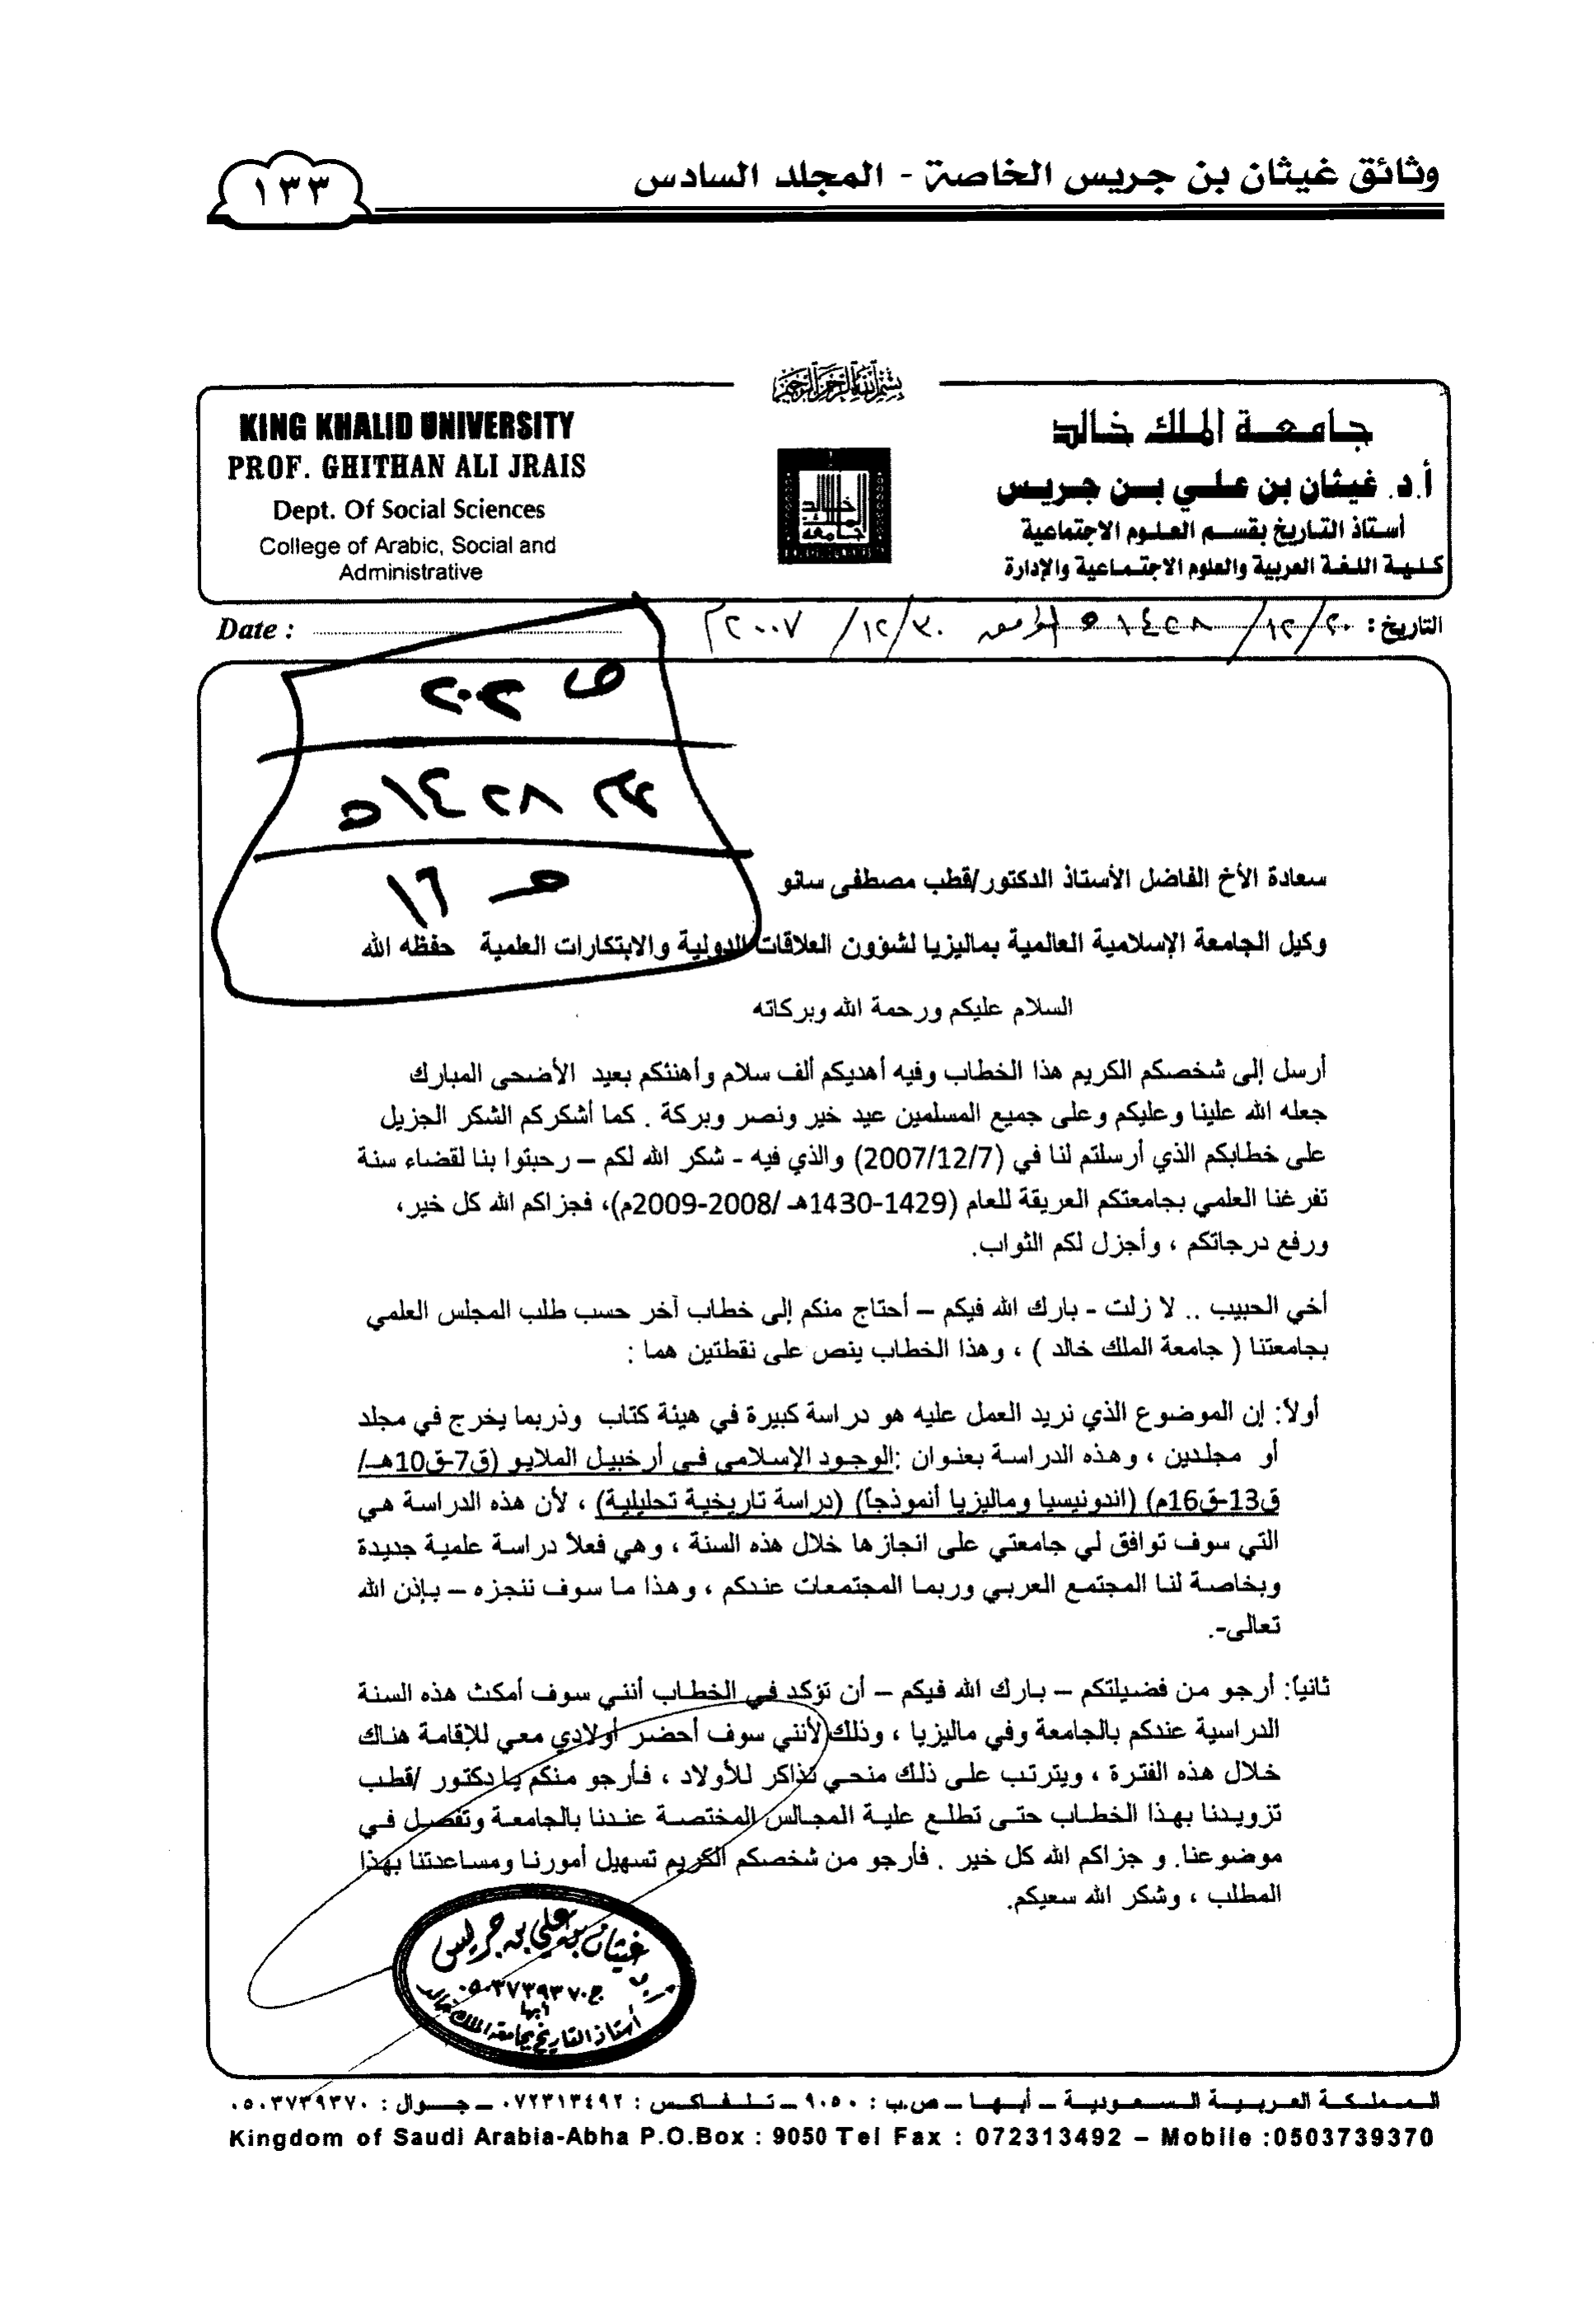 وثائق غيثان بن جريس الخاصة - المجلد السادس
١٣٣
بسم الله الرحمن الرحيم
KING KHALID UNIVERSITY
PROF. GHITHAN ALI JRAIS
Dept. Of Social Sciences
College of Arabic, Social and
Administrative
جامعة الملك خالد
أ.د. غيثان بن علي بن جريس
أستاذ التاريخ بقسم العلوم الاجتماعية
كلية اللغة العربية والعلوم الاجتماعية والإدارة
جامعة الملك خالد
Date :
التاريخ : ٢٠/١٢/١٤٢٨هـ الموافق ٣٠/١٢/٢٠٠٧م
٢٠٢
١٤٢٨هـ
١٦
سعادة الأخ الفاضل الأستاذ الدكتور/قطب مصطفى سانو
وكيل الجامعة الإسلامية العالمية بماليزيا لشؤون العلاقات الدولية والابتكارات العلمية حفظه الله
السلام عليكم ورحمة الله وبركاته
أرسل إلى شخصكم الكريم هذا الخطاب وفيه أهديكم ألف سلام وأهنئكم بعيد الأضحى المبارك
جعله الله علينا وعليكم وعلى جميع المسلمين عيد خير ونصر وبركة . كما أشكركم الشكر الجزيل
على خطابكم الذي أرسلتم لنا في (2007/12/7) والذي فيه - شكر الله لكم – رحبتوا بنا لقضاء سنة
تفرغنا العلمي بجامعتكم العريقة للعام (1429-1430هـ /2008-2009م)، فجزاكم الله كل خير،
ورفع درجاتكم ، وأجزل لكم الثواب.
أخي الحبيب .. لا زلت - بارك الله فيكم – أحتاج منكم إلى خطاب آخر حسب طلب المجلس العلمي
بجامعتنا ( جامعة الملك خالد ) ، وهذا الخطاب ينص على نقطتين هما :
أولاً: إن الموضوع الذي نريد العمل عليه هو دراسة كبيرة في هيئة كتاب وذربما يخرج في مجلد
أو مجلدين ، وهذه الدراسة بعنوان :الوجود الإسلامي في أرخبيل الملايو (ق7-ق10هـ/
ق13-ق16م) (اندونيسيا وماليزيا أنموذجاً) (دراسة تاريخية تحليلية) ، لأن هذه الدراسة هي
التي سوف توافق لي جامعتي على انجازها خلال هذه السنة ، وهي فعلاً دراسة علمية جديدة
وبخاصة لنا المجتمع العربي وربما المجتمعات عندكم ، وهذا ما سوف ننجزه – بإذن الله
تعالى-.
ثانياً: أرجو من فضيلتكم – بارك الله فيكم – أن تؤكد في الخطاب أنني سوف أمكث هذه السنة
الدراسية عندكم بالجامعة وفي ماليزيا ، وذلك لأنني سوف أحضر أولادي معي للإقامة هناك
خلال هذه الفترة ، ويترتب على ذلك منحي تذاكر للأولاد ، فأرجو منكم يا دكتور /قطب
تزويدنا بهذا الخطاب حتى تطلع علية المجالس المختصة عندنا بالجامعة وتفصل في
موضوعنا. و جزاكم الله كل خير . فأرجو من شخصكم الكريم تسهيل أمورنا ومساعدتنا بهذا
المطلب ، وشكر الله سعيكم.
غيثان بن علي بن جريس
ج٠٥٠٣٧٣٩٣٧٠
أبها
أستاذ التاريخ بجامعة الملك خالد
المملكة العربية السعودية – أبها – ص.ب : ٩٠٥٠ – تلفاكس : ٠٧٢٣١٣٤٩٢ – جوال : ٠٥٠٣٧٣٩٣٧٠
Kingdom of Saudi Arabia-Abha P.O.Box : 9050 Tel Fax : 072313492 – Mobile :0503739370